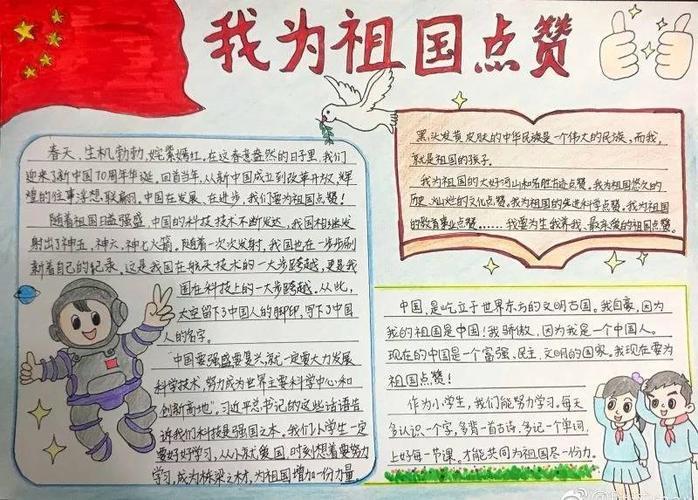 我为祖国点赞
春天,生机勃勃,姹紫嫣红,在这春意盎然的日子里,我们
迎来了新中国70周年华诞,回首当年,从新中国成立到改革开放,辉
煌的往事浮想联翩,中国在发展,在进步,我们要为祖国点赞!
随着祖国日益强盛,中国的科技技术不断发达,我国相继发
射出了神五、神六、神七火箭。随着一次次发射,我国也在一步步刷
新着自己的纪录。这是我国在航天技术的一大步跨越,更是我
国在科技上的一大步跨越。从此,
太空留下了中国人的脚印,写下了中国
人的名字。
"中国要强盛要复兴,就一定要大力发展
科学技术,努力成为世界主要科学中心和
创新高地",习近平总书记的这些话语告
诉我们科技是强国之本。我们小学生一定
要好好学习,从小就爱国,时刻想着要努力
学习,成为栋梁之材,为祖国增加一份力量
黑头发黄皮肤的中华民族是一个伟大的民族,而我,
就是祖国的孩子。
我为祖国的大好河山和名胜古迹点赞。我为祖国悠久的
历史,灿烂的文化点赞。我为祖国的先进科学点赞。我为祖国
的教育事业点赞……我要为生我养我、最亲爱的祖国点赞。
中国,是屹立于世界东方的文明古国。我自豪,因为
我的祖国是中国!我骄傲,因为是一个中国人。
现在的中国是一个富强、民主、文明的国家。我现在要为
祖国点赞!
作为小学生,我们能努力学习。每天
多认识一个字,多背一首古诗,多记一个单词,
上好每一节课,才能共同为祖国尽一份力。